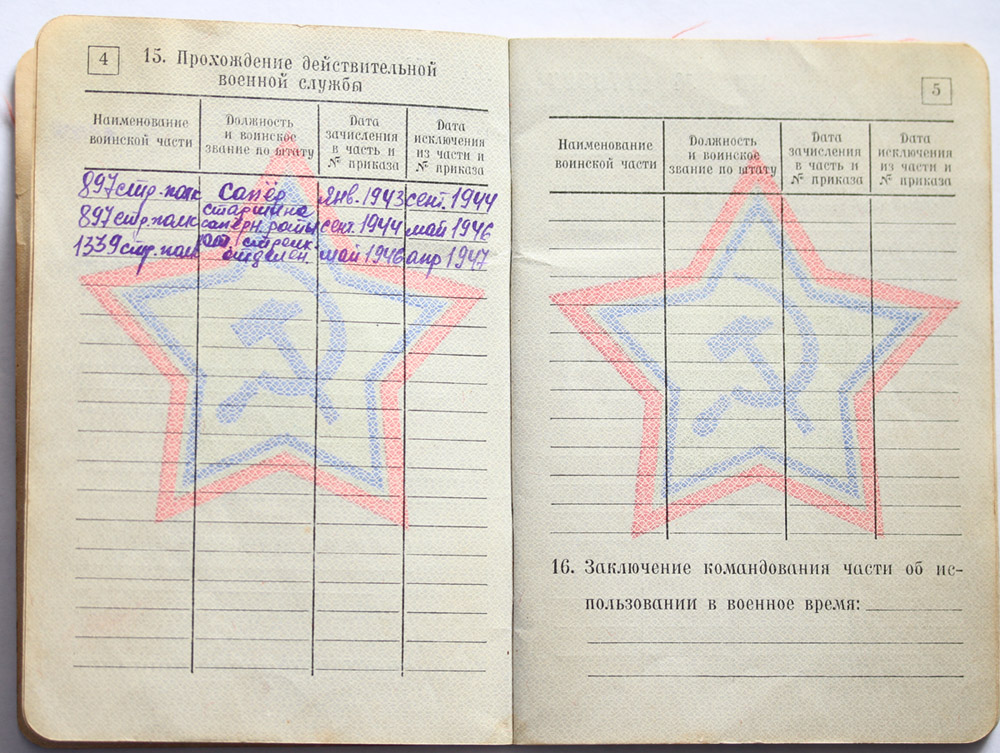 4
15. Прохождение действительной
военной службы
Наименование
воинской части
Должность
и воинское
звание по штату
Дата
зачисления
в часть и
№ приказа
Дата
исключения
из части и
№ приказа
897 стр. полк сапёр янв. 1943 сент. 1944
старшина
897 стр. полк саперн. роты сент. 1944 май 1946
ком. стрелк.
1339 стр. полк отделен. май 1946 апр 1947
5
Наименование
воинской части
Должность
и воинское
звание по штату
Дата
зачисления
в часть и
№ приказа
Дата
исключения
из части и
№ приказа
16. Заключение командования части об ис-
пользовании в военное время: